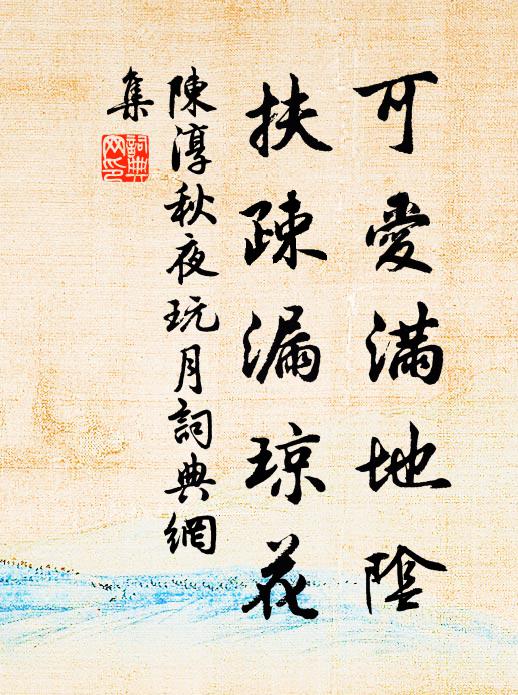 可愛滿地陰
扶疎漏琼花
陳淳秋夜玩月詞典網
集
詞典
网印